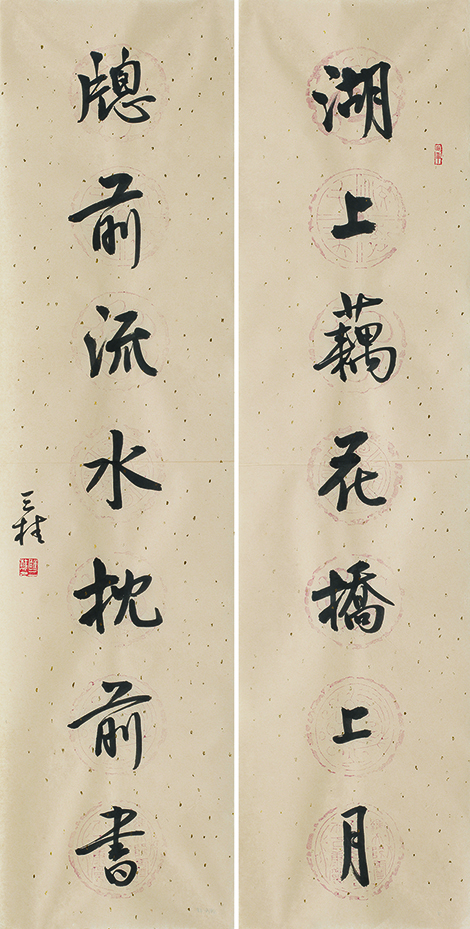 湖上藕花橋上月
牕前流水枕前書
三桂